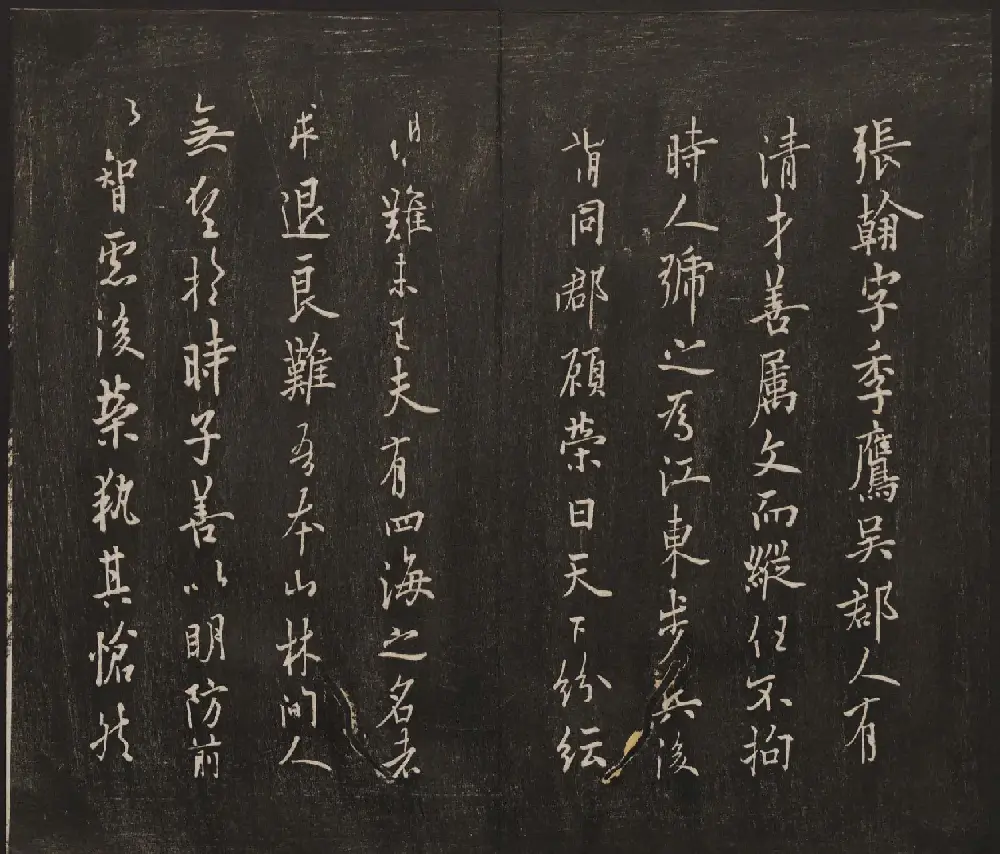 張翰字季鷹吳郡人有
清才善屬文而縱任不拘
時人號之為江東步兵後
同郡顧榮曰天下紛紜
難未已夫有四海之名者
求退良難吾本山林間人
無望於時子善以明防前
智慮後榮執其愴然